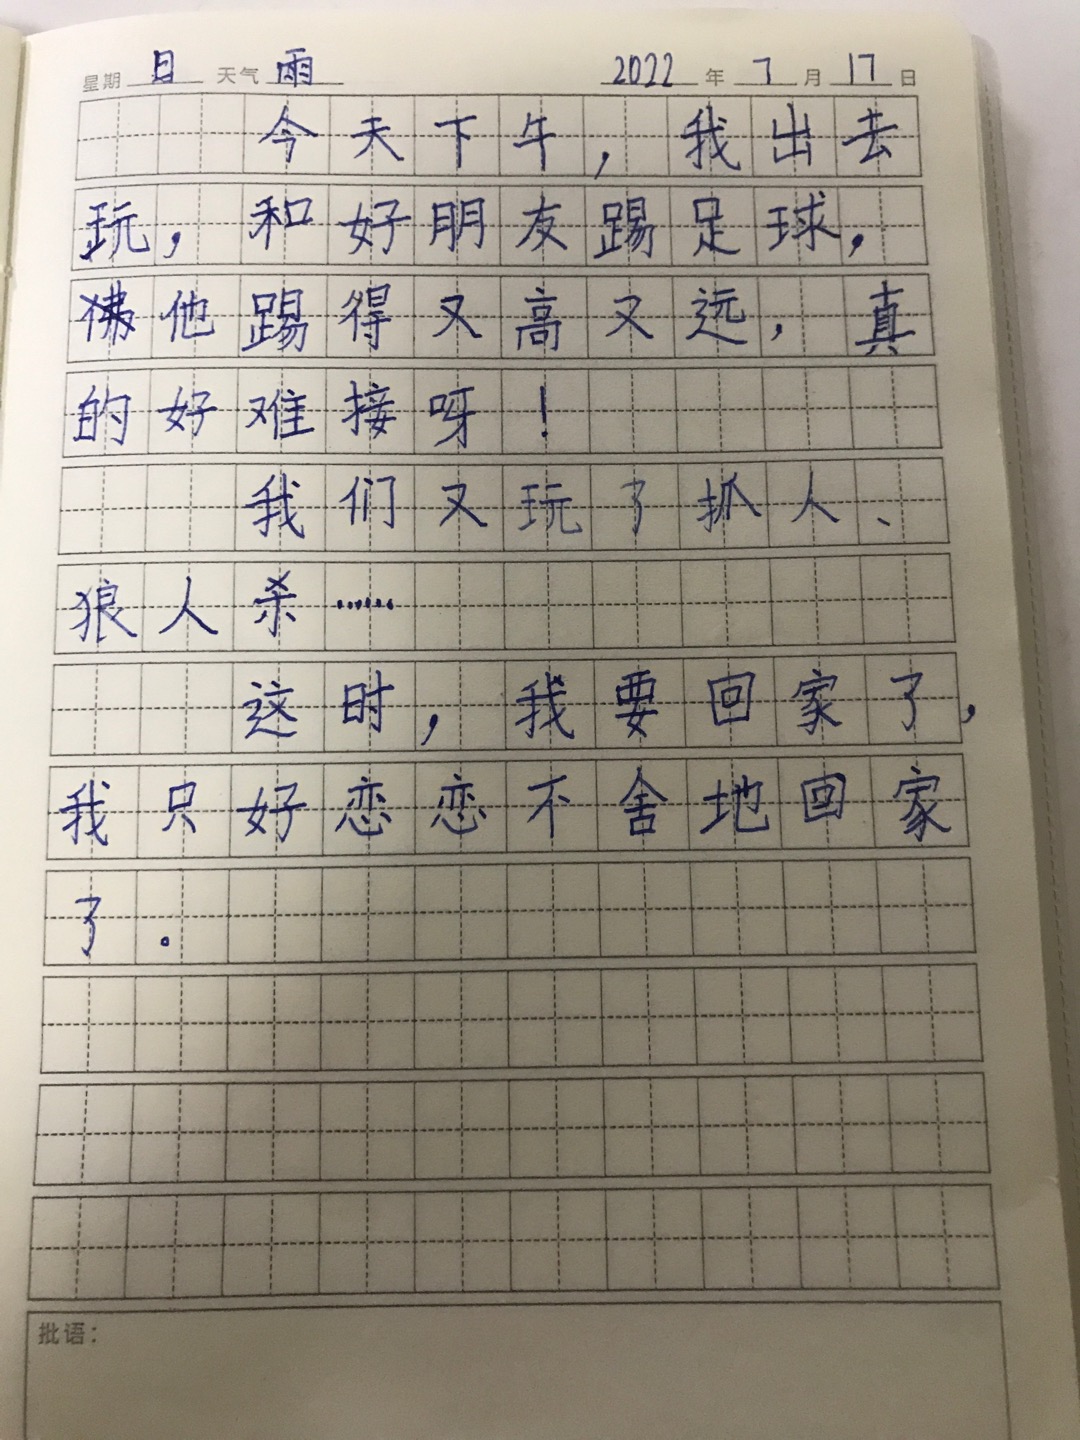 星期 日 天气 雨 2022 年 7 月 17 日
今天下午，我出去
玩，和好朋友踢足球，
他踢得又高又远，真
的好难接呀！
我们又玩了抓人、
狼人杀……
这时，我要回家了，
我只好恋恋不舍地回家
了。
批语：